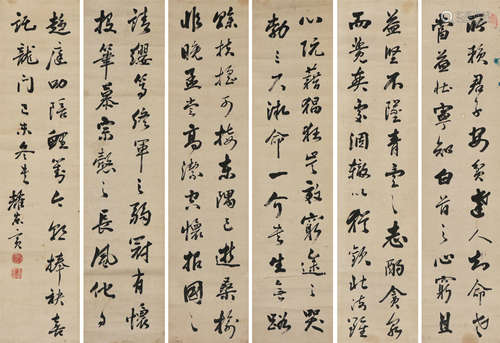 所賴君子安貧達人知命老
當益壯寧知白首之心窮且
益堅不墜青雲之志酌貪泉
而覺爽處涸轍以猶歡北海雖
心阮藉猖狂豈效窮途之哭
勃三尺微命一介書生無路
賒扶搖可接東隅已逝桑榆
非晚孟嘗高潔空懷報國之
請纓等終軍之弱冠有懷
投筆慕宗愨之長風他日
趨庭叨陪鯉對今茲捧袂喜
託龍門己未冬